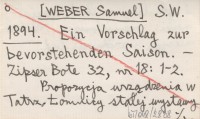 [WEBER Samuel] S.W.
1894. Ein Vorschlag zur
bevorstehenden Saison. —
Zipser Bote 32, nr 18: 1-2.
Propozycja urządzenia w
Tatrz. Łomnicy stałej wystawy